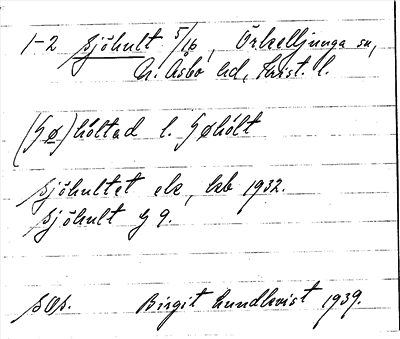 1-2 Sjöhult 5/16, Örkelljunga sn,
N. Åsbo hd, Krist. l.
(Gø)hôltad l. Gøhôlt
Sjöhultet ek, kb 1932.
Sjöhult G 9.
Birgit Lundkvist 1939.